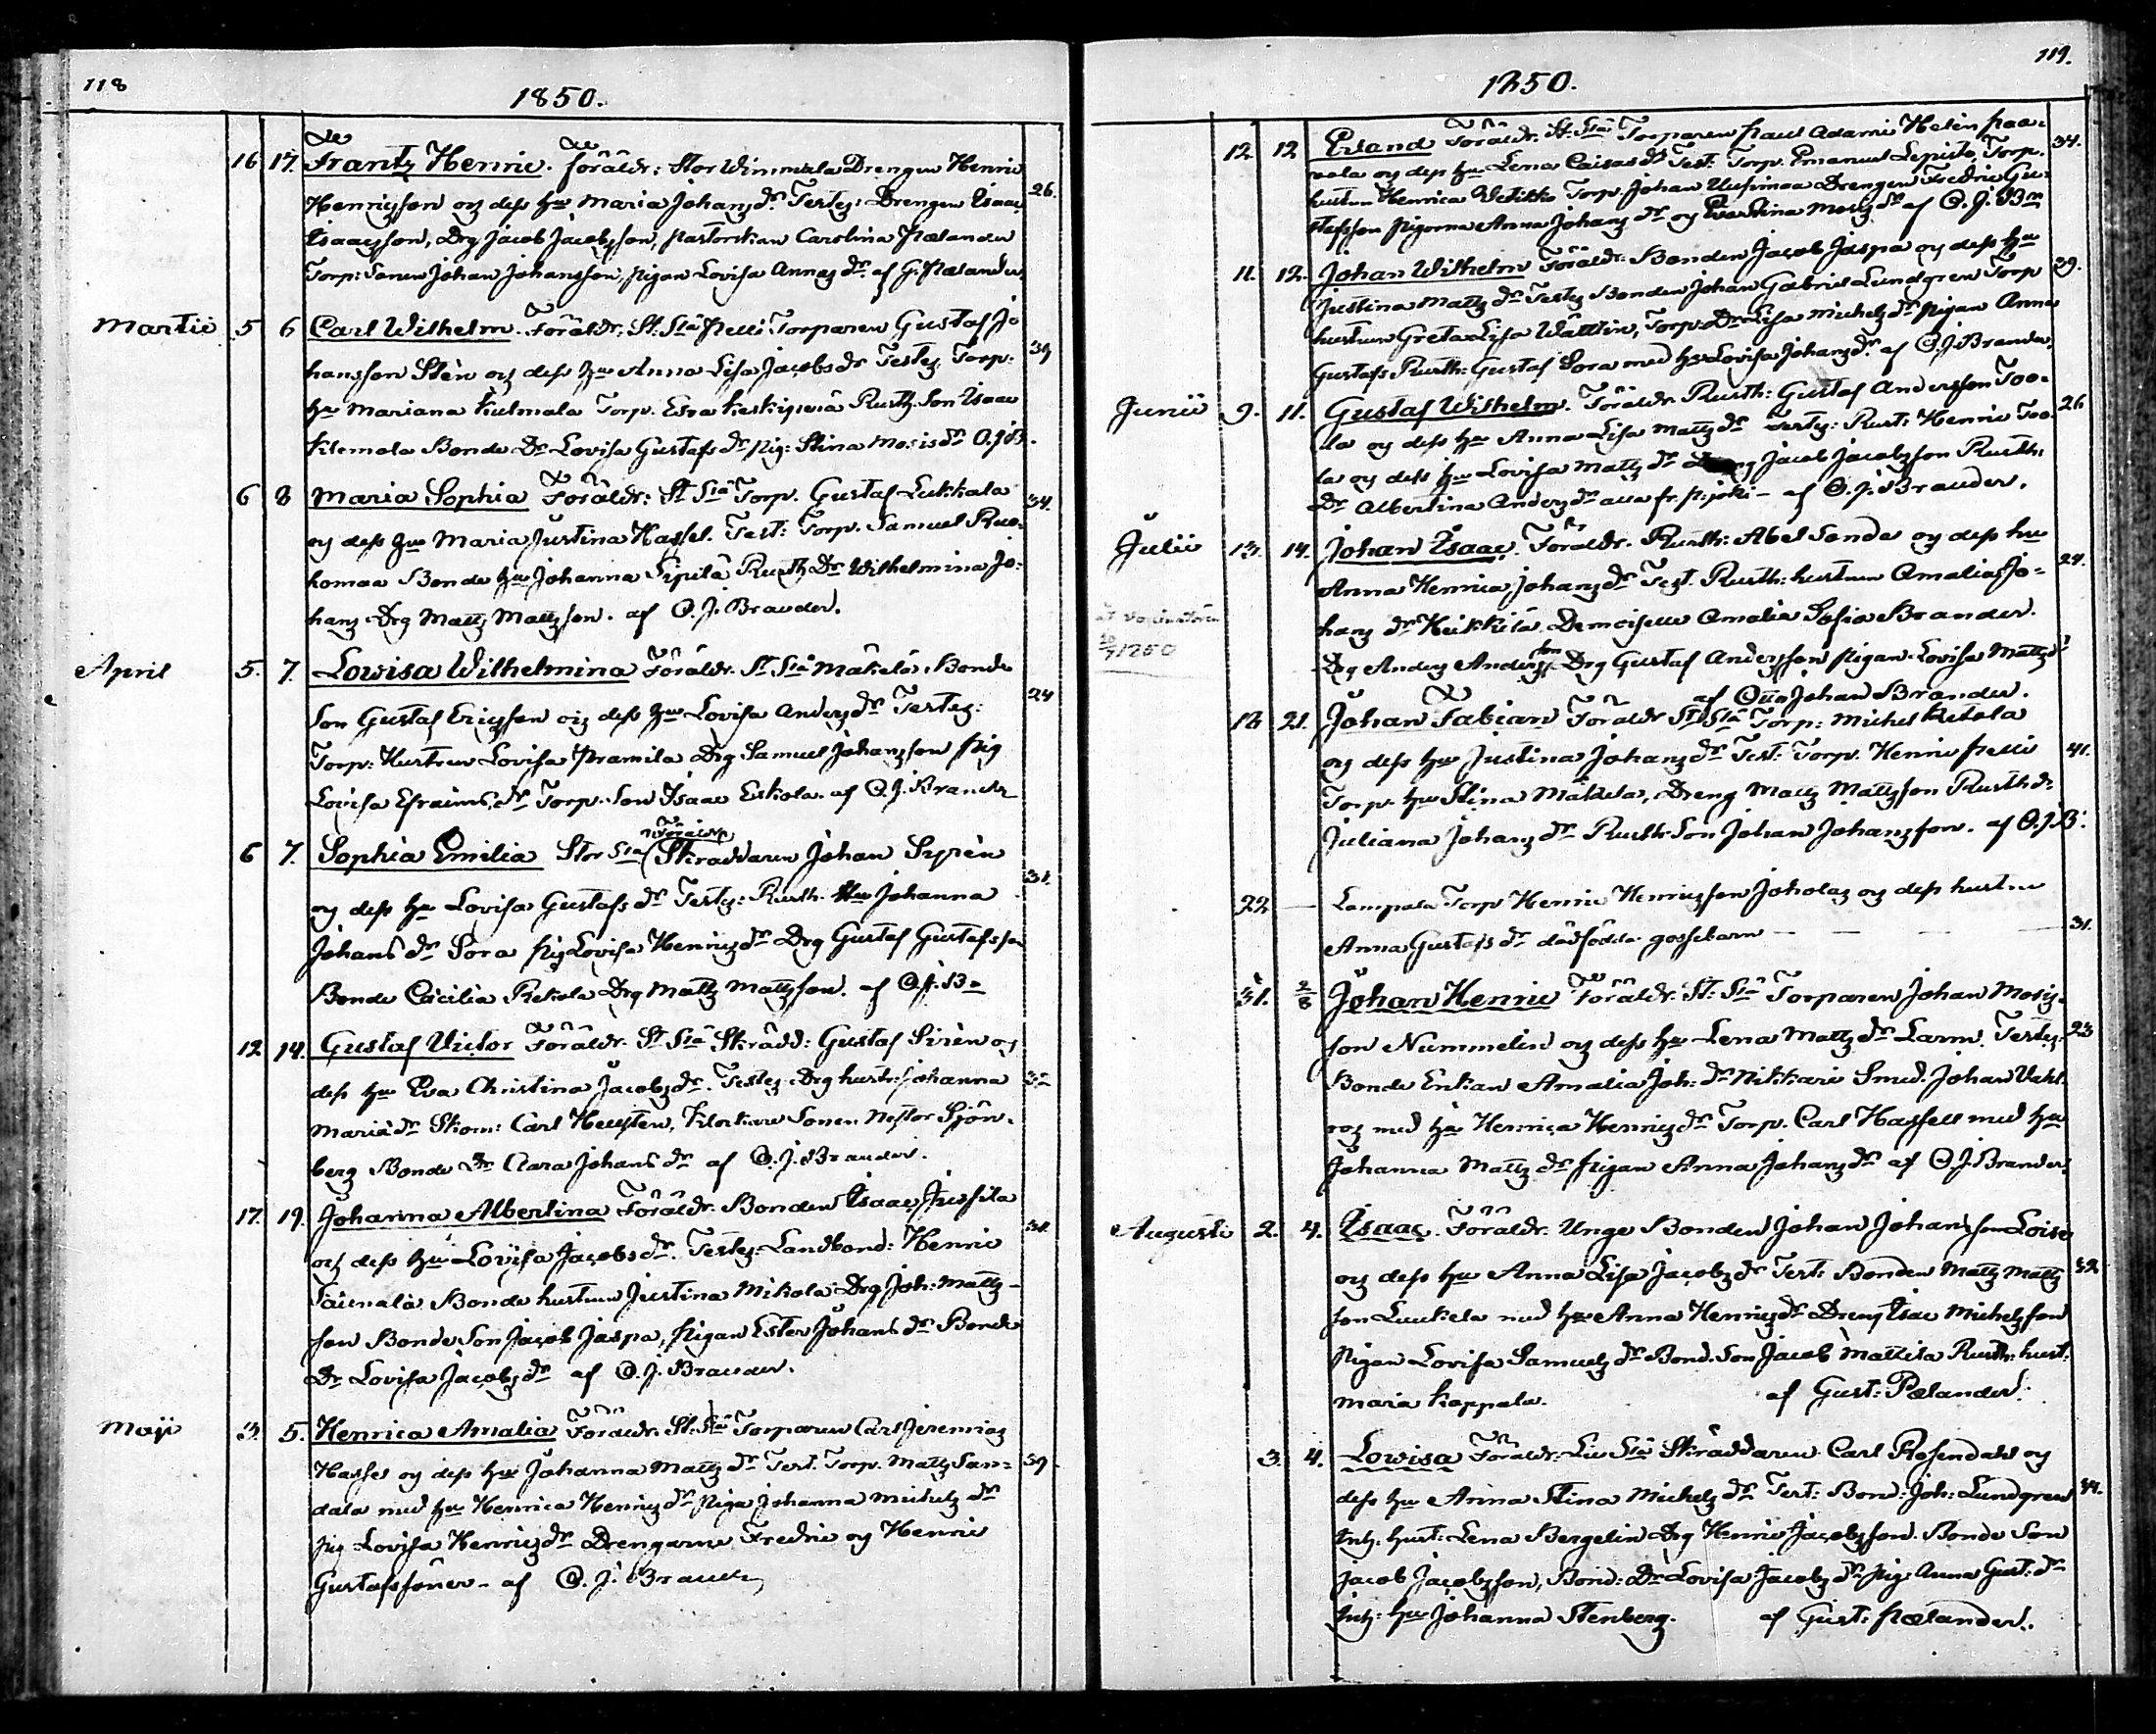 118
1850.
16 17. Frantz Henric. Föräldr: Stor Wimmala Drengen Henric
Henricsson og dess hu Maria Johansdr. Testes: Drengen Isaac 26.
Isaacsson, Drg Jacob Jacobsson, Pastorskan Carolina Pælander
Torp: Sonen Johan Johansson, Pigan Lovisa Annasdr. af G. Pælander
Martii 5 6 Carl Wilhelm. Föräldr. St. Sta Torparen Gustaf Jo
hansson Sten og dess hu Anna Lisa Jacobsdr Testes, Torp:
hu Mariana Kulmala Torp. Esra Rusth. Son Isaac
Klemola Bonde Dr Lovisa Gustafsdr Pig: Stina Mosisdr O.J.B.
6 8 Maria Sophia Föräldr: St Sta Torp. Gustaf Lukkala 34.
og dess hu Maria Justina Hassel. Test: Torp. Samuel Ruo-
homaa Bonde hu Johanna Sipilä Rusth Dr Wilhelmina Jo-
hans Drg Matts Mattsson. af O.J. Brander.
April 5. 7. Lovisa Wilhelmina Föräldr. St Sta Mäkelä, Bonde
Son Gustaf Ericsson og dess hu Lovisa Andersdr Testes: 24
Torp: Hustrun Lovisa Drg Samuel Johansson Pig
Lovisa Efraimsdr Torp. Son Isaac Eskola. af O.J. Brander
6 7. Sophia Emilia Stor Sta (Föräldr) Skräddaren Johan Syrèn
og dess hu Lovisa Gustafsdr Testes: Rusth. Hu Johanna 31.
Johansdr Sora Pig Lovisa Henricsdr Drg Gustaf Gustafsson
Bonde Cæcilia Rekola Drg Matts Mattsson. af O.J. Br
12 14. Gustaf Victor Föräldr. St Sta Skrädd: Gustaf Sirèn og
dess hu Eva Christina Jacobsdr. Testes: Drg hustr. Johanna
Mariædr Skom: Carl Hellsten, Klockare Sonen Nestor Sjön-
berg Bonde Dr Clara Johansdr af O.J. Brander.
17. 19. Johanna Albertina Föräldr. Bonden Isaac Jussila
og dess hu Lovisa Jacobsdr. Testes: Landbond: Henric
Saunala Bonde hustrun Justina Mikola Drg Joh: Matts-
son Bonde Son Jacob Jaspa, Pigan Ester Johansdr Bonde
Dr Lovisa Jacobsdr af O.J. Brander.
Maji 3. 5. Henrica Amalia Föräldr. St: Sta Torparen Carl Jeremias
Hassel og dess hu Johanna Mattsdr Test. Torp. Matts San- 39
dala med hu Henrica Henricsdr Piga Johanna Michelsdr
Pig Lovisa Henricsdr Drengarne Fredric og Henric
Gustafssöner. af O.J. Brander
119.
1850.
12 12 Erland Föräldr. St: Sta Torparen Paul Adami Helin Paa- 34.
vola og dess hu Lena Caisasdr Test: Torp. Emanuel Lepistö, Torp.
hustrun Henrica Torp. Johan Uusimaa Drengen Fredric Gu-
stafsson Pigorna Anna Johansdr og Evastina Mosisdr af O.J. Br
11. 12. Johan Wilhelm Föräldr: Bonden Jacob Jaspa og dess hu 39.
Justina Mattsdr Testes Bonden Johan Gabriel Lundgren Torp
hustrun Greta Lisa Wättin, Torp. Dr Lisa Michelsdr Pigan Anna
Gustafs Rusth: Gustaf Sora med hu Lovisa Johansdr. af O.J. Brander.
Junii 9. 11. Gustaf Wilhelm. Föräldr Rusth: Gustaf Andersson Too- 26
la og dess hu Anna Lisa Mattsdr Testes: Rust: Henric Too-
la og dess hu Lovisa Mattsdr Drg Jacob Jacobsson Rusth:
Dr Albertina Andersdr alla fr. P:joki - af O.J. Brander.
Julii 13. 14. Johan Isaac. Föräldr. Rusth: Abel Sonda og dess hu
Anna Henrica Johansdr Test. Rusth: hustrun Amalia Jo- 24.
hansdr Heikkilä Demoiselle Amalia Sofia Brander.
Drg Anders Andersson Drg Gustaf Andersson Pigan Lovisa Mattsdr
af Otto Johan Brander.
1850
18 21. Johan Fabian Föräldr St: Sta Torp: Michel Ketola
og dess hu Justina Johansdr Test: Torp. Henric Pelli 41.
Torp. hu Stina Mäkelä, Dreng Matts Mattsson Rusth dr
Juliana Johansdr Rusth. Son Johan Johansson. af O.J.B.
22 — Lampola Torp Henric Henricsson Johola og dess hustru
Anna Gustafsdr dödfödda gossebarn — — — 31.
31. 2/8 Johan Henric Föräldr. St: Sta Torparen Johan Mosis-
son Nummelin og dess hu Lena Mattsdr Larm. Testes. 23
Bonde Enkan Amalia Joh: dr Nikkari Smed. Johan
og med hu Henrica Henricsdr Torp. Carl Hassell med hu
Johanna Mattsdr Pigan Anna Johansdr af O.J. Brander.
Augusti 2. 4. Isaac. Föräldr. Unge Bonden Johan Johansson
og dess hu Anna Lisa Jacobsdr Test: Bonden Matts Matts
son med hu Anna Henricsdr Dreng Isac Michelsson
Pigan Lovisa Samuelsdr Bond. Son Jacob Mattila Rusth: hust:
Maria Kappala. af Gust: Pælander.
3. 4. Lovisa Föräldr. Sta Skräddaren Carl Rosendahl og
dess hu Anna Stina Michelsdr Test: Bond: Joh: Lundgren
Inh. hust: Lena Bergelin Drg Henric Jacobsson. Bonde Son
Jacob Jacobsson, Bond: Dr Lovisa Jacobsdr Pig: Anna Gust: dr
Inh: hu Johanna Stenberg. af Gust: Pælander.